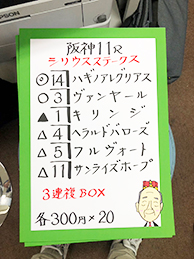 EPSON
阪神11R
シリウスステークス
◎14 ハギノアレグリアス
○3 ヴァンヤール
▲1 キリンジ
△4 ヘラルドバローズ
△5 フルヴォート
△11 サンライズホープ
3連複BOX
各300円×20